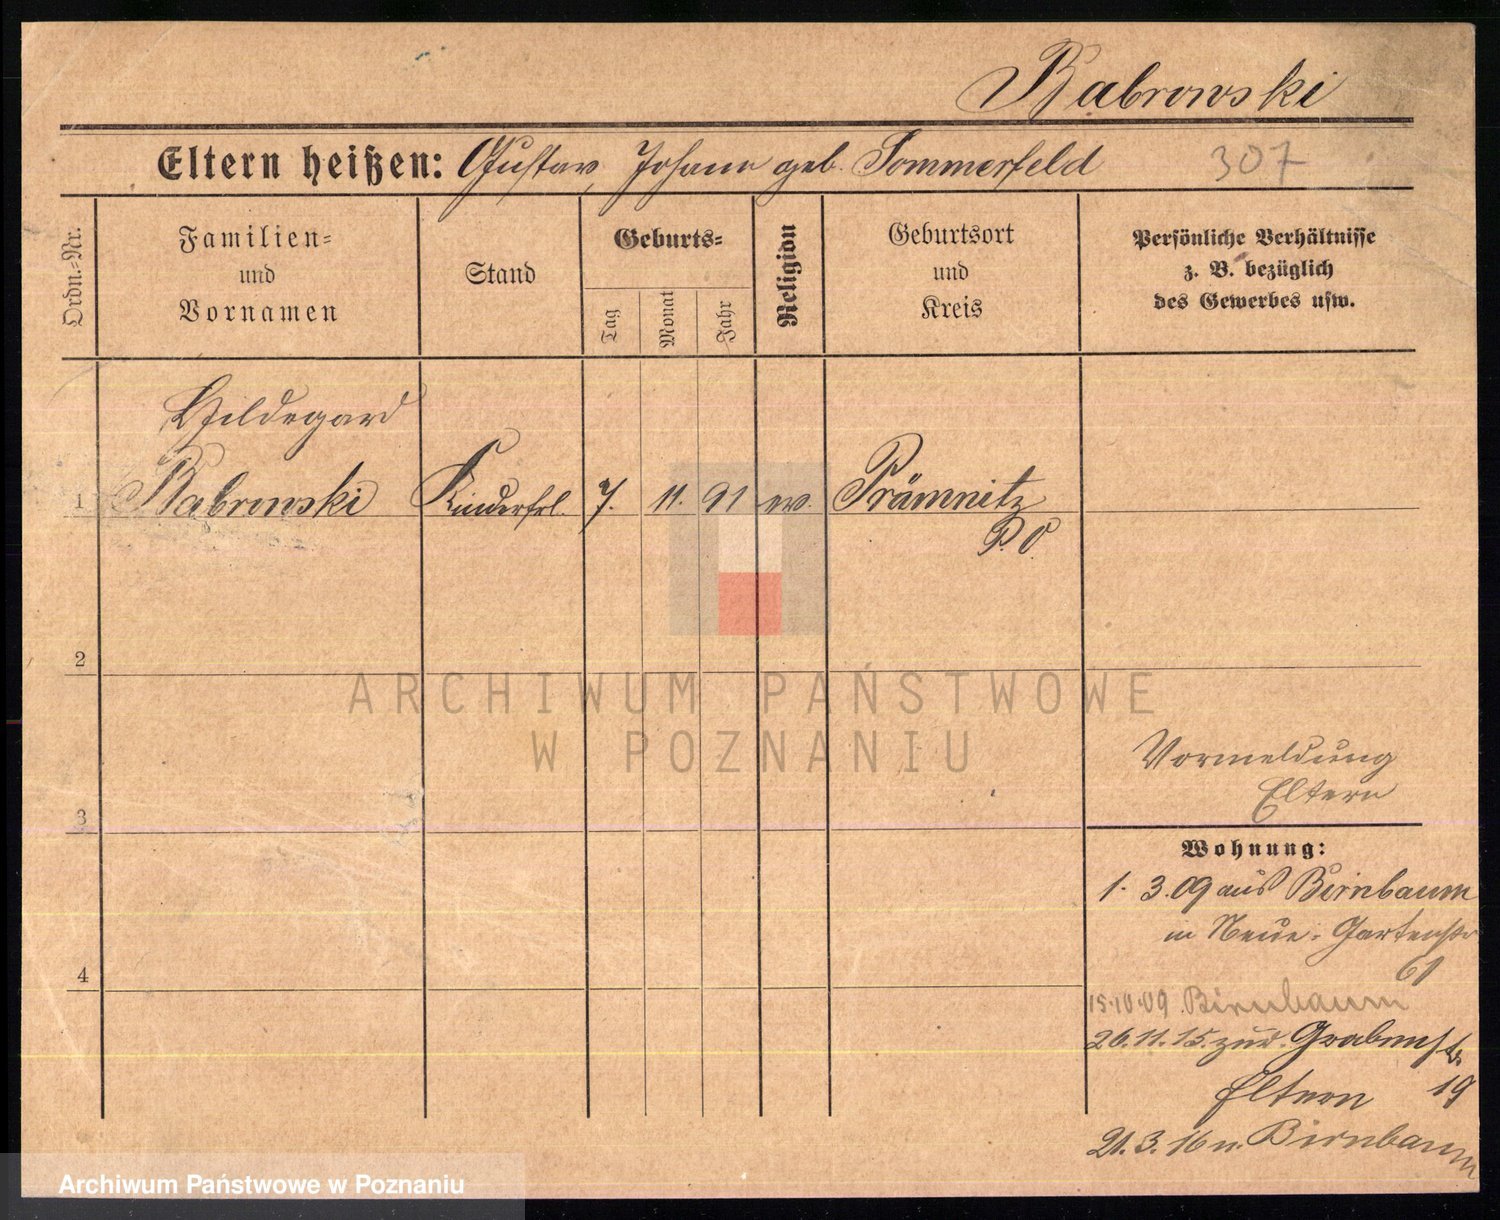 Babrowski
Eltern heißen: Gustav, Johann geb. Sommerfeld 307
Ordn.=Nr.
Familien=
und
Vornamen
Stand
Geburts=
Tag
Monat
Jahr
Religion
Geburtsort
und
Kreis
Persönliche Verhältnisse
z. B. bezüglich
des Gewerbes usw.
Hildegard
1 Babrowski Kinderfrl. 7. 11. 91 ev. Prämnitz
P. O.
2
ARCHIWUM PAŃSTWOWE
W POZNANIU
Vormeldung
Eltern
3
Wohnung:
1. 3. 09 aus Birnbaum
in Neue. Gartenstr
61
4
15.10.09 Birnbaum
26.11.15. zur. Grabenstr.
Eltern 19
21.3.16 n. Birnbaum
Archiwum Państwowe w Poznaniu